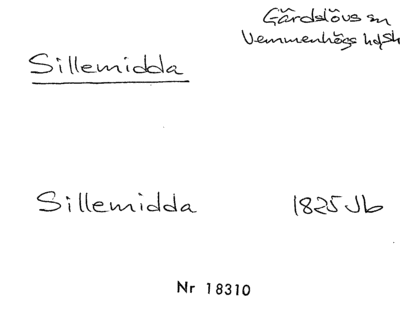 Gärdslövs sn
Vemmenhögs hd
Sillemidda
Sillemidda 1825 Jb
Nr 18310